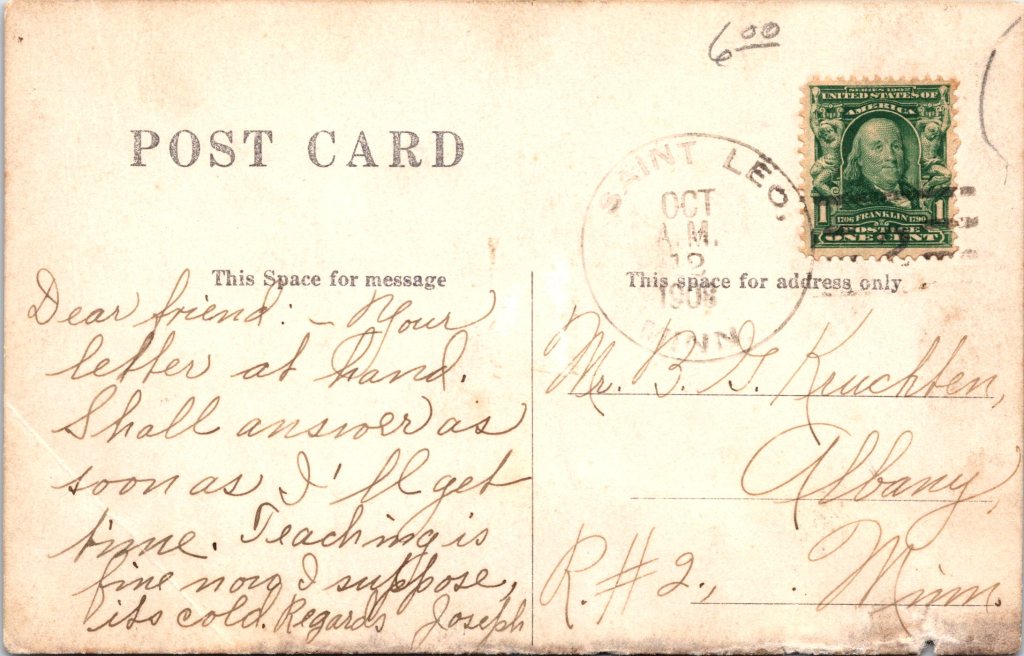 6 00
SERIES 1902
UNITED STATES OF
AMERICA
1 1
1706 FRANKLIN 1790
POSTAGE
ONE CENT
POST CARD
SAINT LEO,
OCT
A.M.
12
MINN
This Space for message
This space for address only
Dear friend: – Your
letter at hand.
Shall answer as
soon as I'll get
time. Teaching is
fine now I suppose,
its cold. Regards Joseph
Mr. B. G. Kruchten,
Albany,
R. #2., Minn.